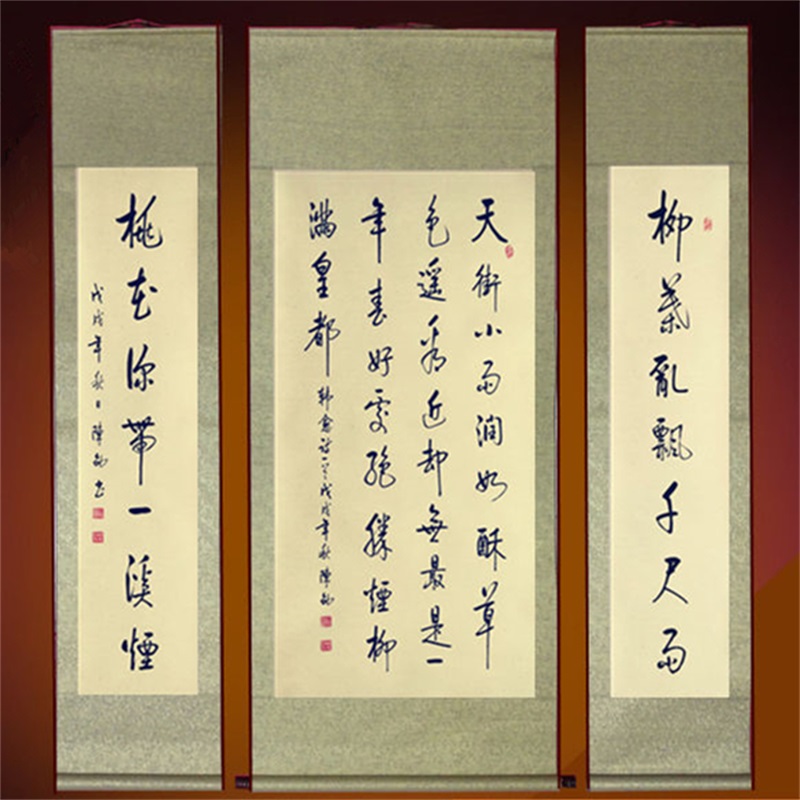 柳葉亂飄千尺雨
天街小雨潤如酥草
色遥看近却無最是一
年春好處絕勝煙柳
滿皇都
韓愈詩一首戊戌年秋陳
桃花帶一溪煙
戊戌年秋日陳書